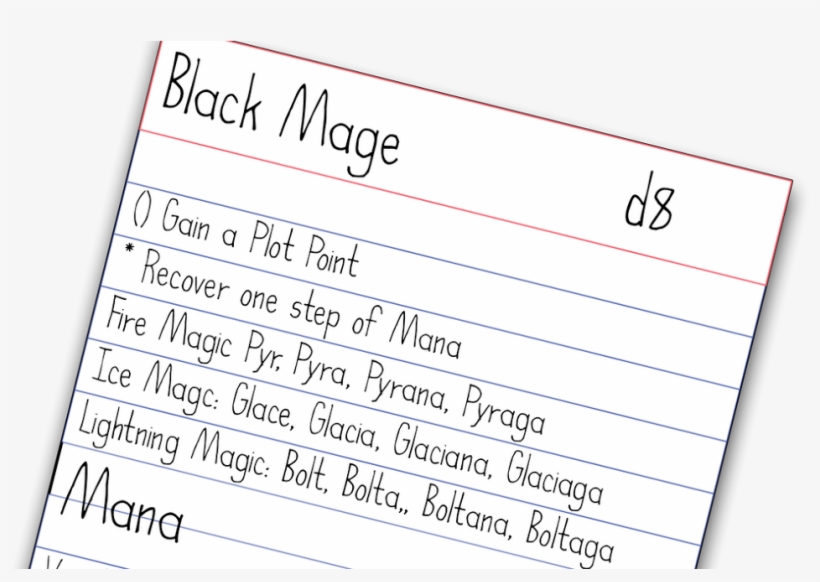 Black Mage
d8
() Gain a Plot Point
* Recover one step of Mana
Fire Magic Pyr, Pyra, Pyrana, Pyraga
Ice Magc: Glace, Glacia, Glaciana, Glaciaga
Lightning Magic: Bolt, Bolta,, Boltana, Boltaga
Mana